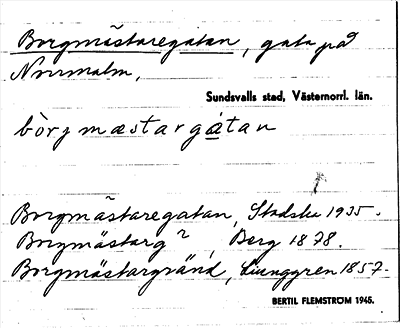 Borgmästaregatan, gata på
Norrmalm,
Sundsvalls stad, Västernorrl. län.
bòrjmæstargátan
Borgmästaregatan, Stadska 1935.
Borgmästarg², Berg 1878.
Borgmästargränd, Ljunggren 1857.
BERTIL FLEMSTRÖM 1945.